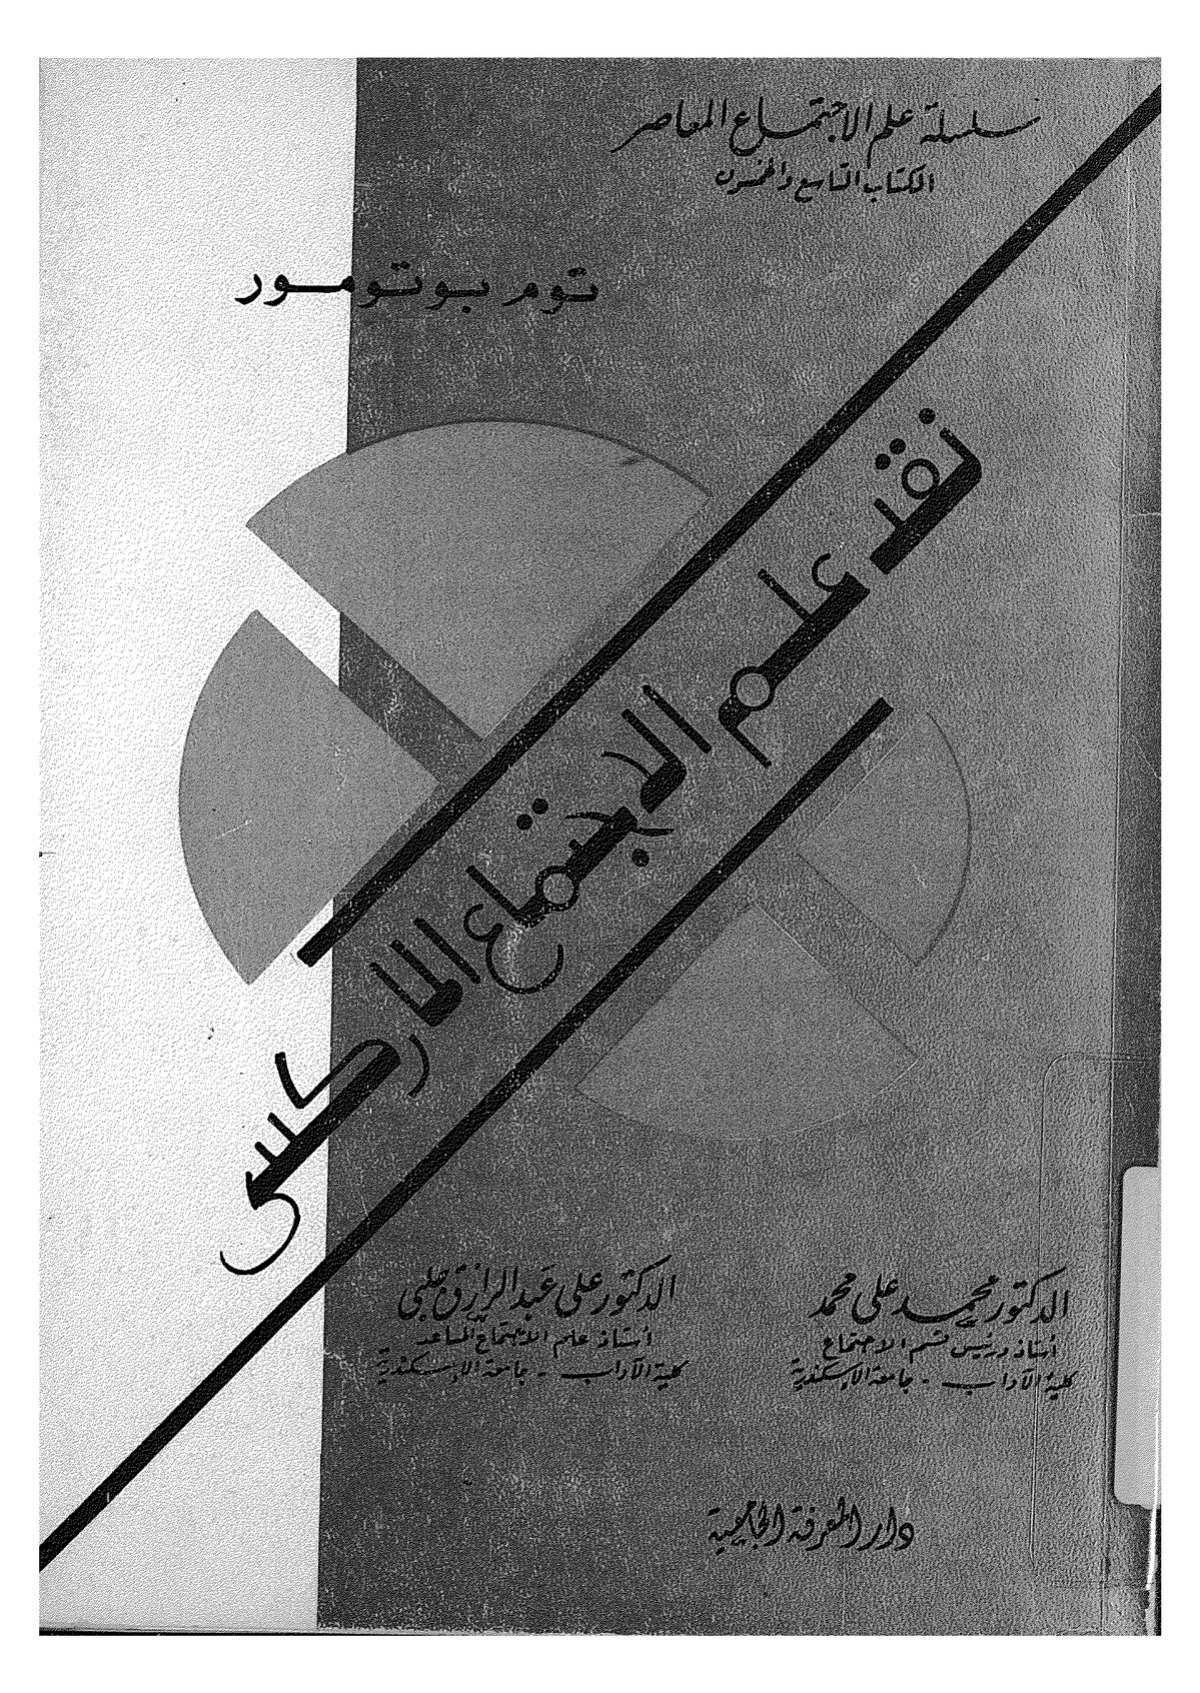 سلسلة علم الاجتماع المعاصر
الكتاب التاسع والخمسون
توم بوتومور
نقد علم الاجتماع الماركسى
الدكتور محمد على محمد
أستاذ ورئيس قسم الاجتماع
كلية الآداب - جامعة الإسكندرية
الدكتور على عبد الرازق جلبى
أستاذ علم الاجتماع المساعد
كلية الآداب - جامعة الإسكندرية
دار المعرفة الجامعية